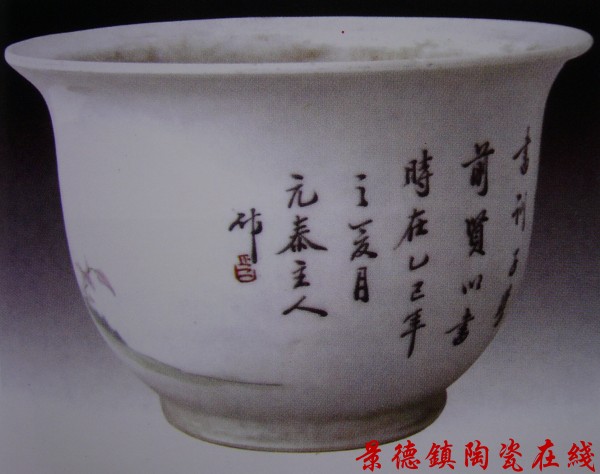 書
前賢以書
時在乙巳年
之夏月
元泰主人
作
景德鎮陶瓷在線